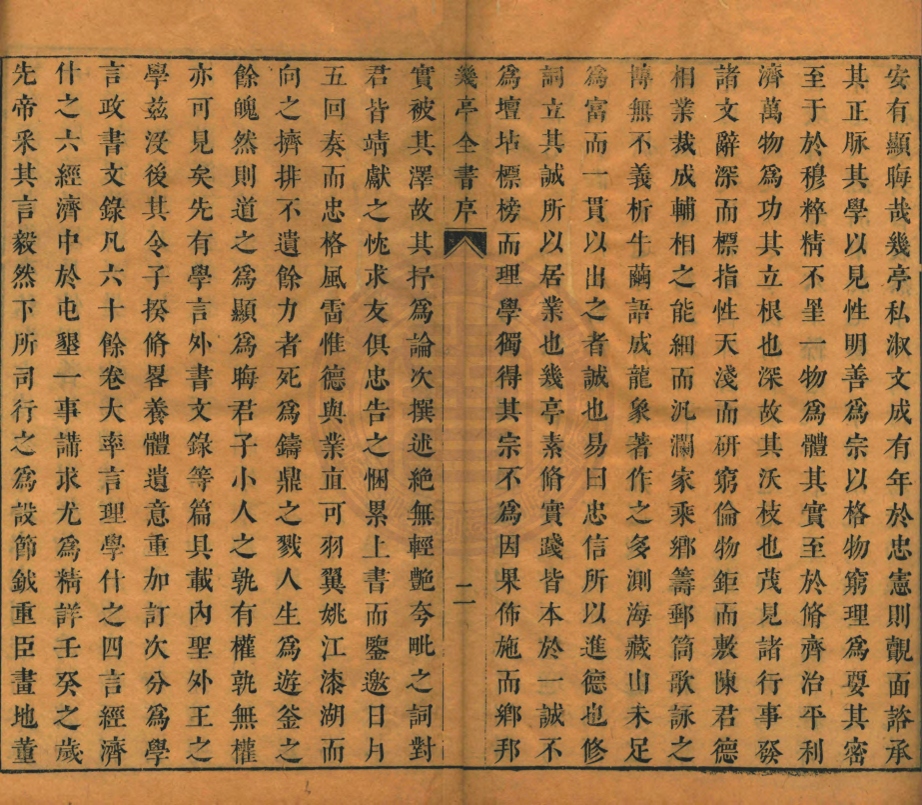 安有顯晦哉幾亭私淑文成有年於忠憲則覿面諮承
其正脉其學以見性明善爲宗以格物窮理爲要其密
至于於穆粹精不墨一物爲體其實至於脩齊治平利
濟萬物爲功其立根也深故其沃枝也茂見諸行事發
諸文辭深而標指性天淺而硏窮倫物鉅而敷陳君德
相業裁成輔相之能細而汎瀾家乘鄉籌郵筒歌詠之
博無不義析牛繭語成龍象著作之多測海藏山未足
爲富而一貫以出之者誠也易曰忠信所以進德也修
詞立其誠所以居業也幾亭素脩實踐皆本於一誠不
爲壇坫標榜而理學獨得其宗不爲因果佈施而鄉邦
幾亭全書序 二
實被其澤故其抒爲論次撰述絶無輕艷夸毗之詞對
君皆靖獻之忱求友俱忠告之悃累上書而鑒邀日月
五回奏而忠格風雷惟德與業直可羽翼姚江漆湖而
向之擠排不遺餘力者死爲鑄鼎之戮人生爲遊釜之
餘魄然則道之爲顯爲晦君子小人之孰有權孰無權
亦可見矣先有學言外書文錄等篇具載內聖外王之
學茲没後其令子揆脩畧養體遺意重加訂次分爲學
言政書文錄凡六十餘卷大率言理學什之四言經濟
什之六經濟中於屯墾一事講求尤爲精詳壬癸之歲
先帝釆其言毅然下所司行之爲設節鉞重臣畫地董